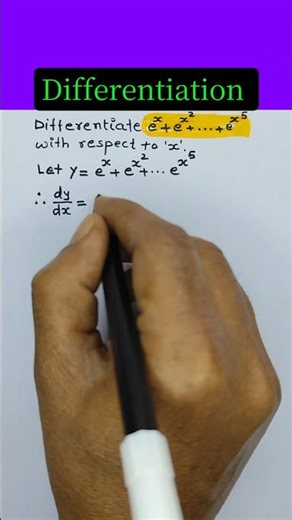 Differentiation
Differentiate e^x + e^x^2 + ... + e^x^5
with respect to 'x'.
Let y = e^x + e^x^2 + ... e^x^5
∴ dy/dx =